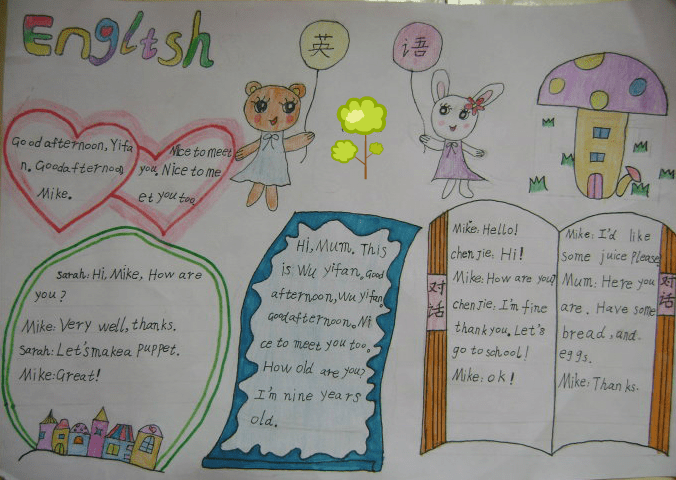 English
英
语
Good afternoon, Yifa
n. Goodafternoon,
Mike.
Nice to meet
you. Nice to me
et you too.
Sarah: Hi, Mike, How are
you?
Mike: Very well, thanks.
Sarah: Let's make a puppet.
Mike: Great!
Hi, Mum. This
is Wu Yifan. Good
afternoon, Wu Yifan.
Goodafternoon. Ni
ce to meet you too.
How old are you?
I'm nine years
old.
对话
Mike: Hello!
chen Jie: Hi!
Mike: How are you?
chen Jie: I'm fine
thank you. Let's
go to school!
Mike: ok!
Mike: I'd like
some juice Please.
Mum: Here you
are. Have some
bread, and
eggs.
Mike: Thanks.
对话